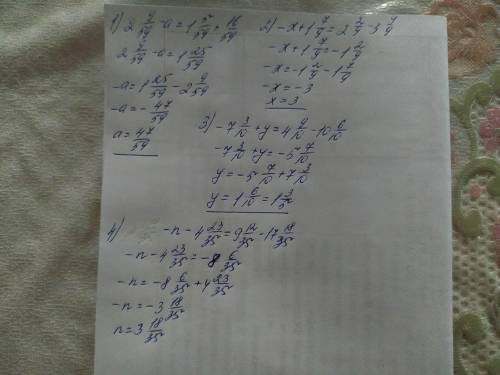 1) 2 9/59 - a = 1 9/59 + 16/59
2 9/59 - a = 1 25/59
-a = 1 25/59 - 2 9/59
-a = - 47/59
a = 47/59
2) -x + 1 7/9 = 2 2/9 - 3 4/9
-x + 1 7/9 = -1 2/9
-x = -1 2/9 - 1 7/9
-x = -3
x = 3
3) -7 3/10 + y = 4 9/10 - 10 6/10
-7 3/10 + y = -5 7/10
y = -5 7/10 + 7 3/10
y = 1 6/10 = 1 3/5
4) -n - 4 23/35 = 9 12/35 - 17 18/35
-n - 4 23/35 = -8 6/35
-n = -8 6/35 + 4 23/35
-n = -3 18/35
n = 3 18/35